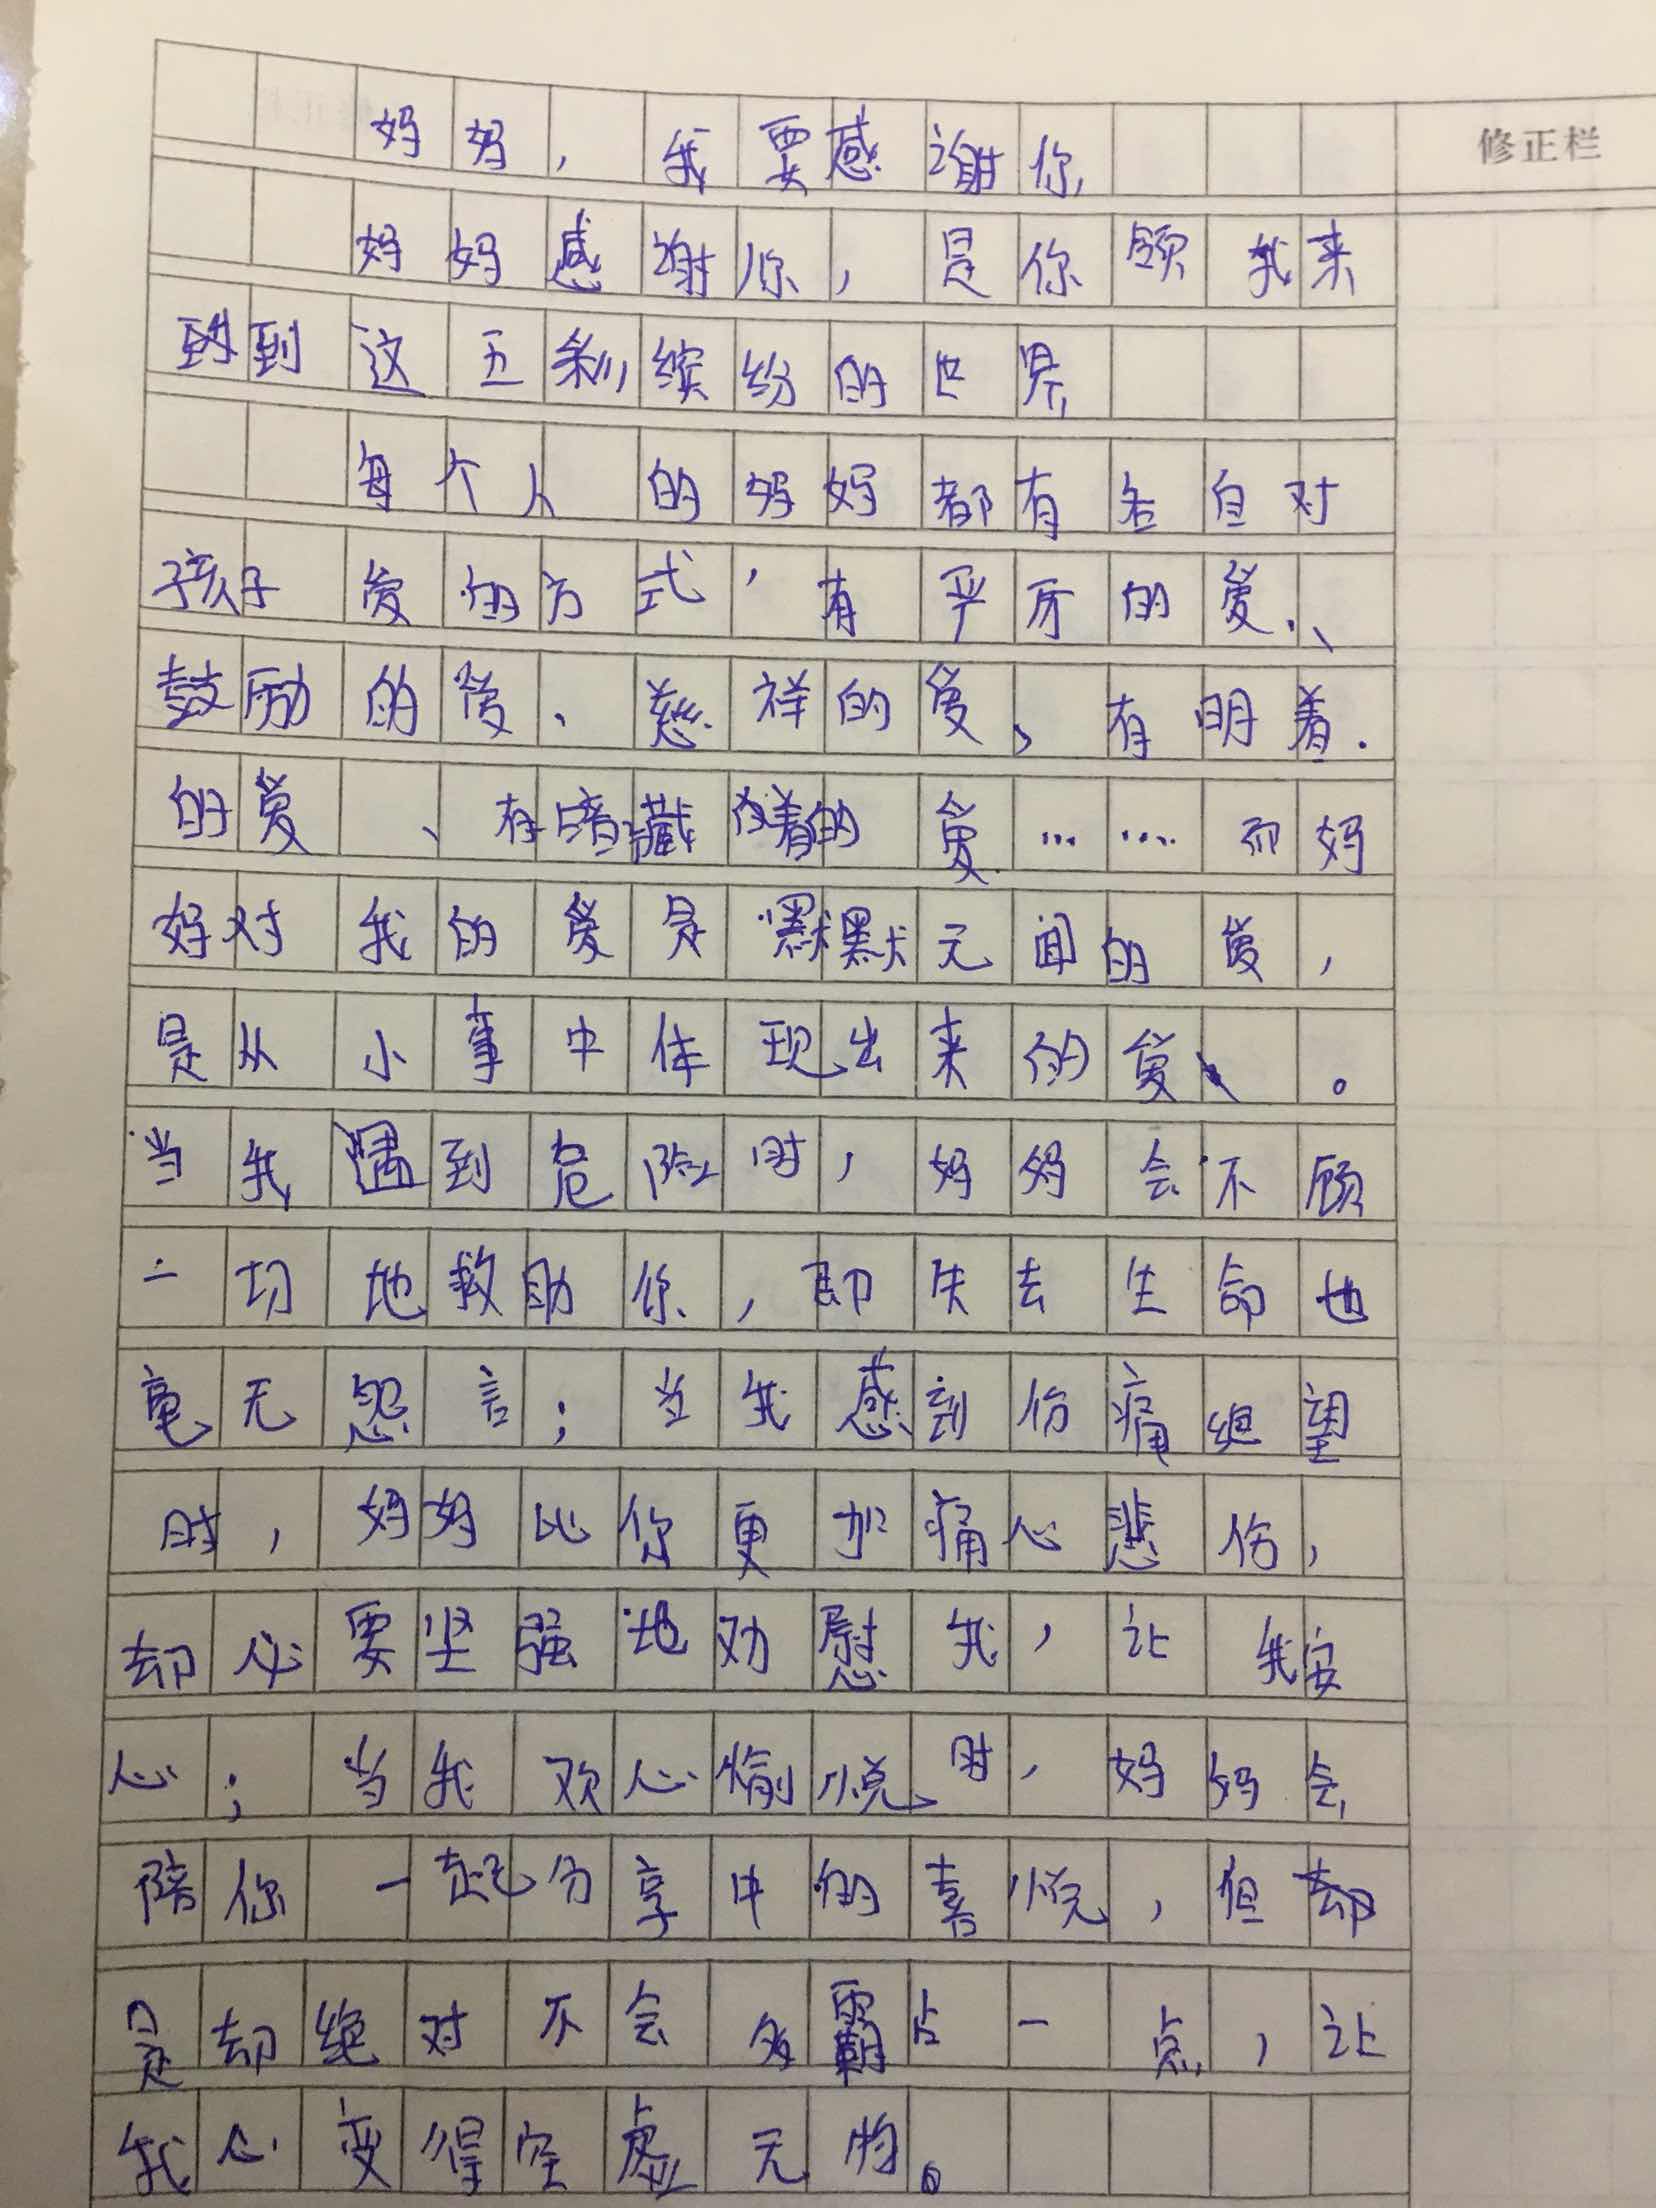 妈妈，我要感谢你，
修正栏
妈妈感谢你，是你领我来
到这五彩缤纷的世界，
每个人的妈妈都有各自对
孩子爱的方式，有严厉的爱、
鼓励的爱、慈祥的爱、有明着
的爱、有暗藏着的爱……而妈
妈对我的爱是默默无闻的爱，
是从小事中体现出来的爱。
当我遇到危险时，妈妈会不顾
一切地救助你，即失去生命也
毫无怨言；当我感到伤痛绝望
时，妈妈比你更加痛心悲伤，
却必要坚强地劝慰我，让我安
心；当我欢心愉悦时，妈妈会
陪你一起分享中的喜悦，但却
是却绝对不会多霸占一点，让
我心变得空虚无物。